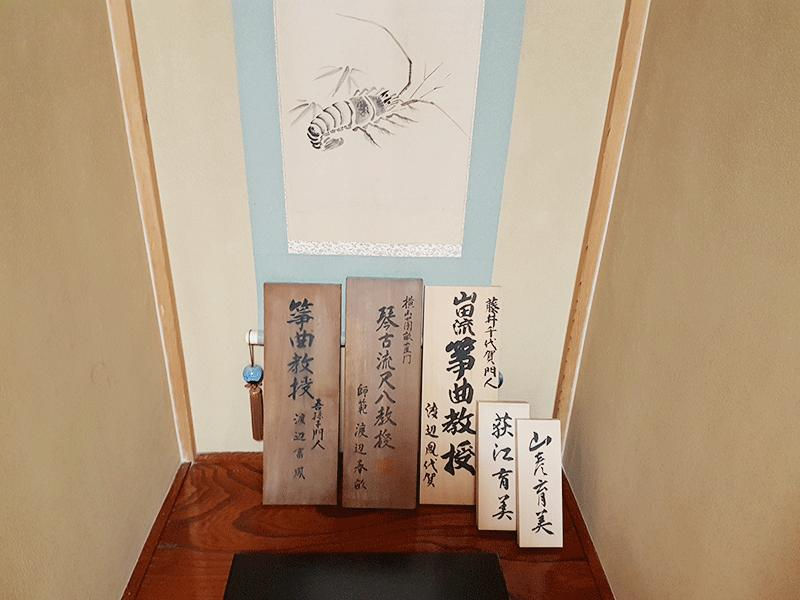 箏曲教授
吾孫子門人
渡辺
琴古流尺八教授
師範 渡辺
藤井千代賀門人
山田流箏曲教授
渡辺凰代賀
荻江育美
山彦育美